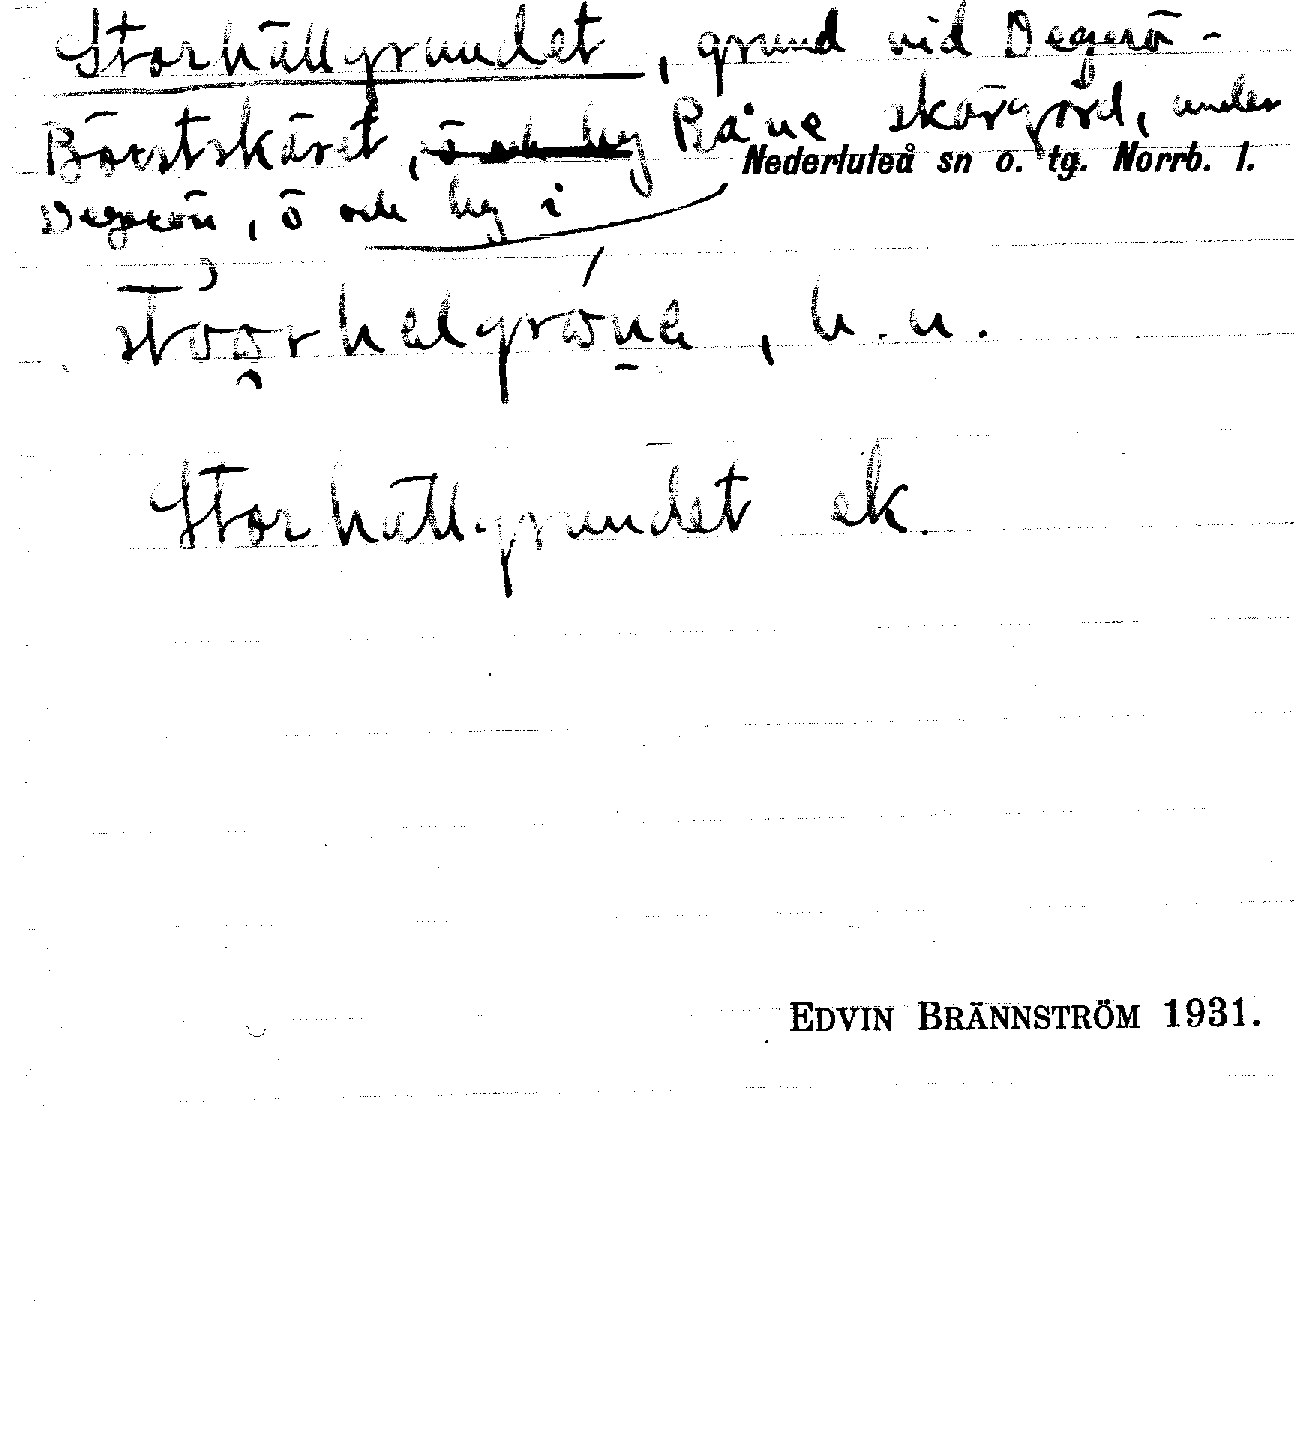 Storhällgrundet, grund vid Degerö-
Börstskäret, ö och by Råne skärgård, under
Nederluleå sn o. tg. Norrb. l.
Degerön, ö och by i
h.n.
Storhällgrundet ek.
EDVIN BRÄNNSTRÖM 1931.